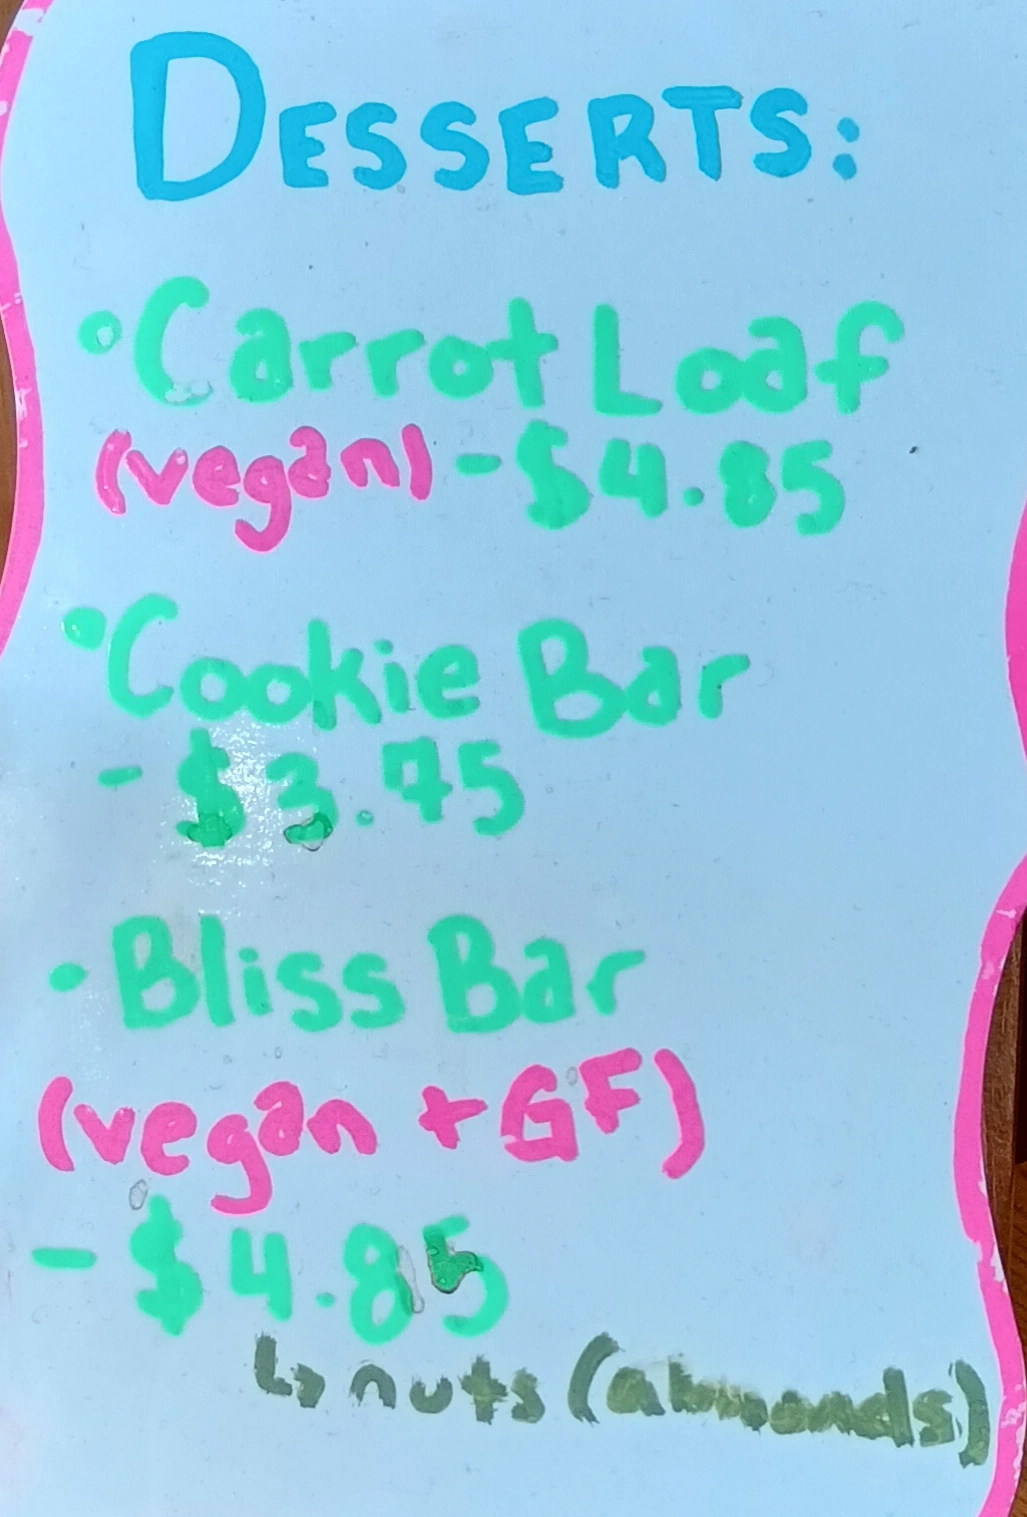 DESSERTS:
•Carrot Loaf
(vegan) - $4.85
•Cookie Bar
- $3.75
•Bliss Bar
(vegan + GF)
- $4.85
↳ nuts (almonds)